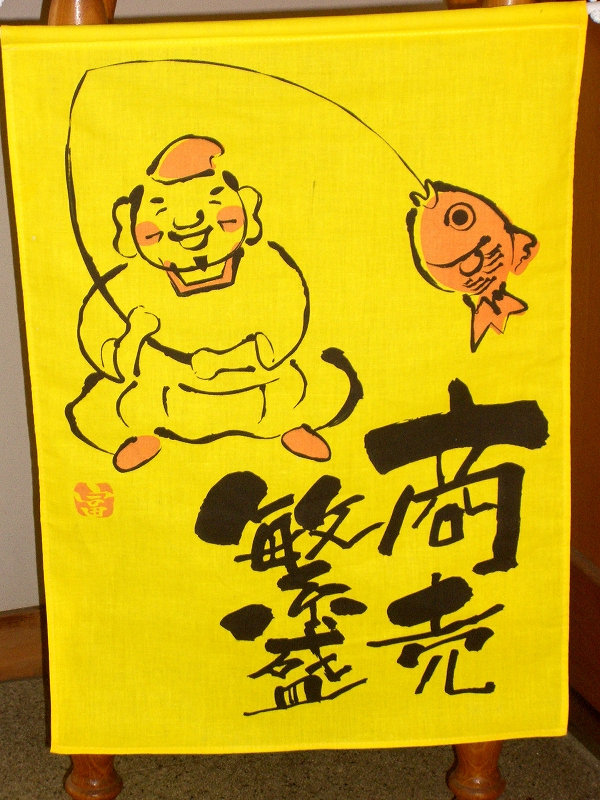 商売
繁盛
富